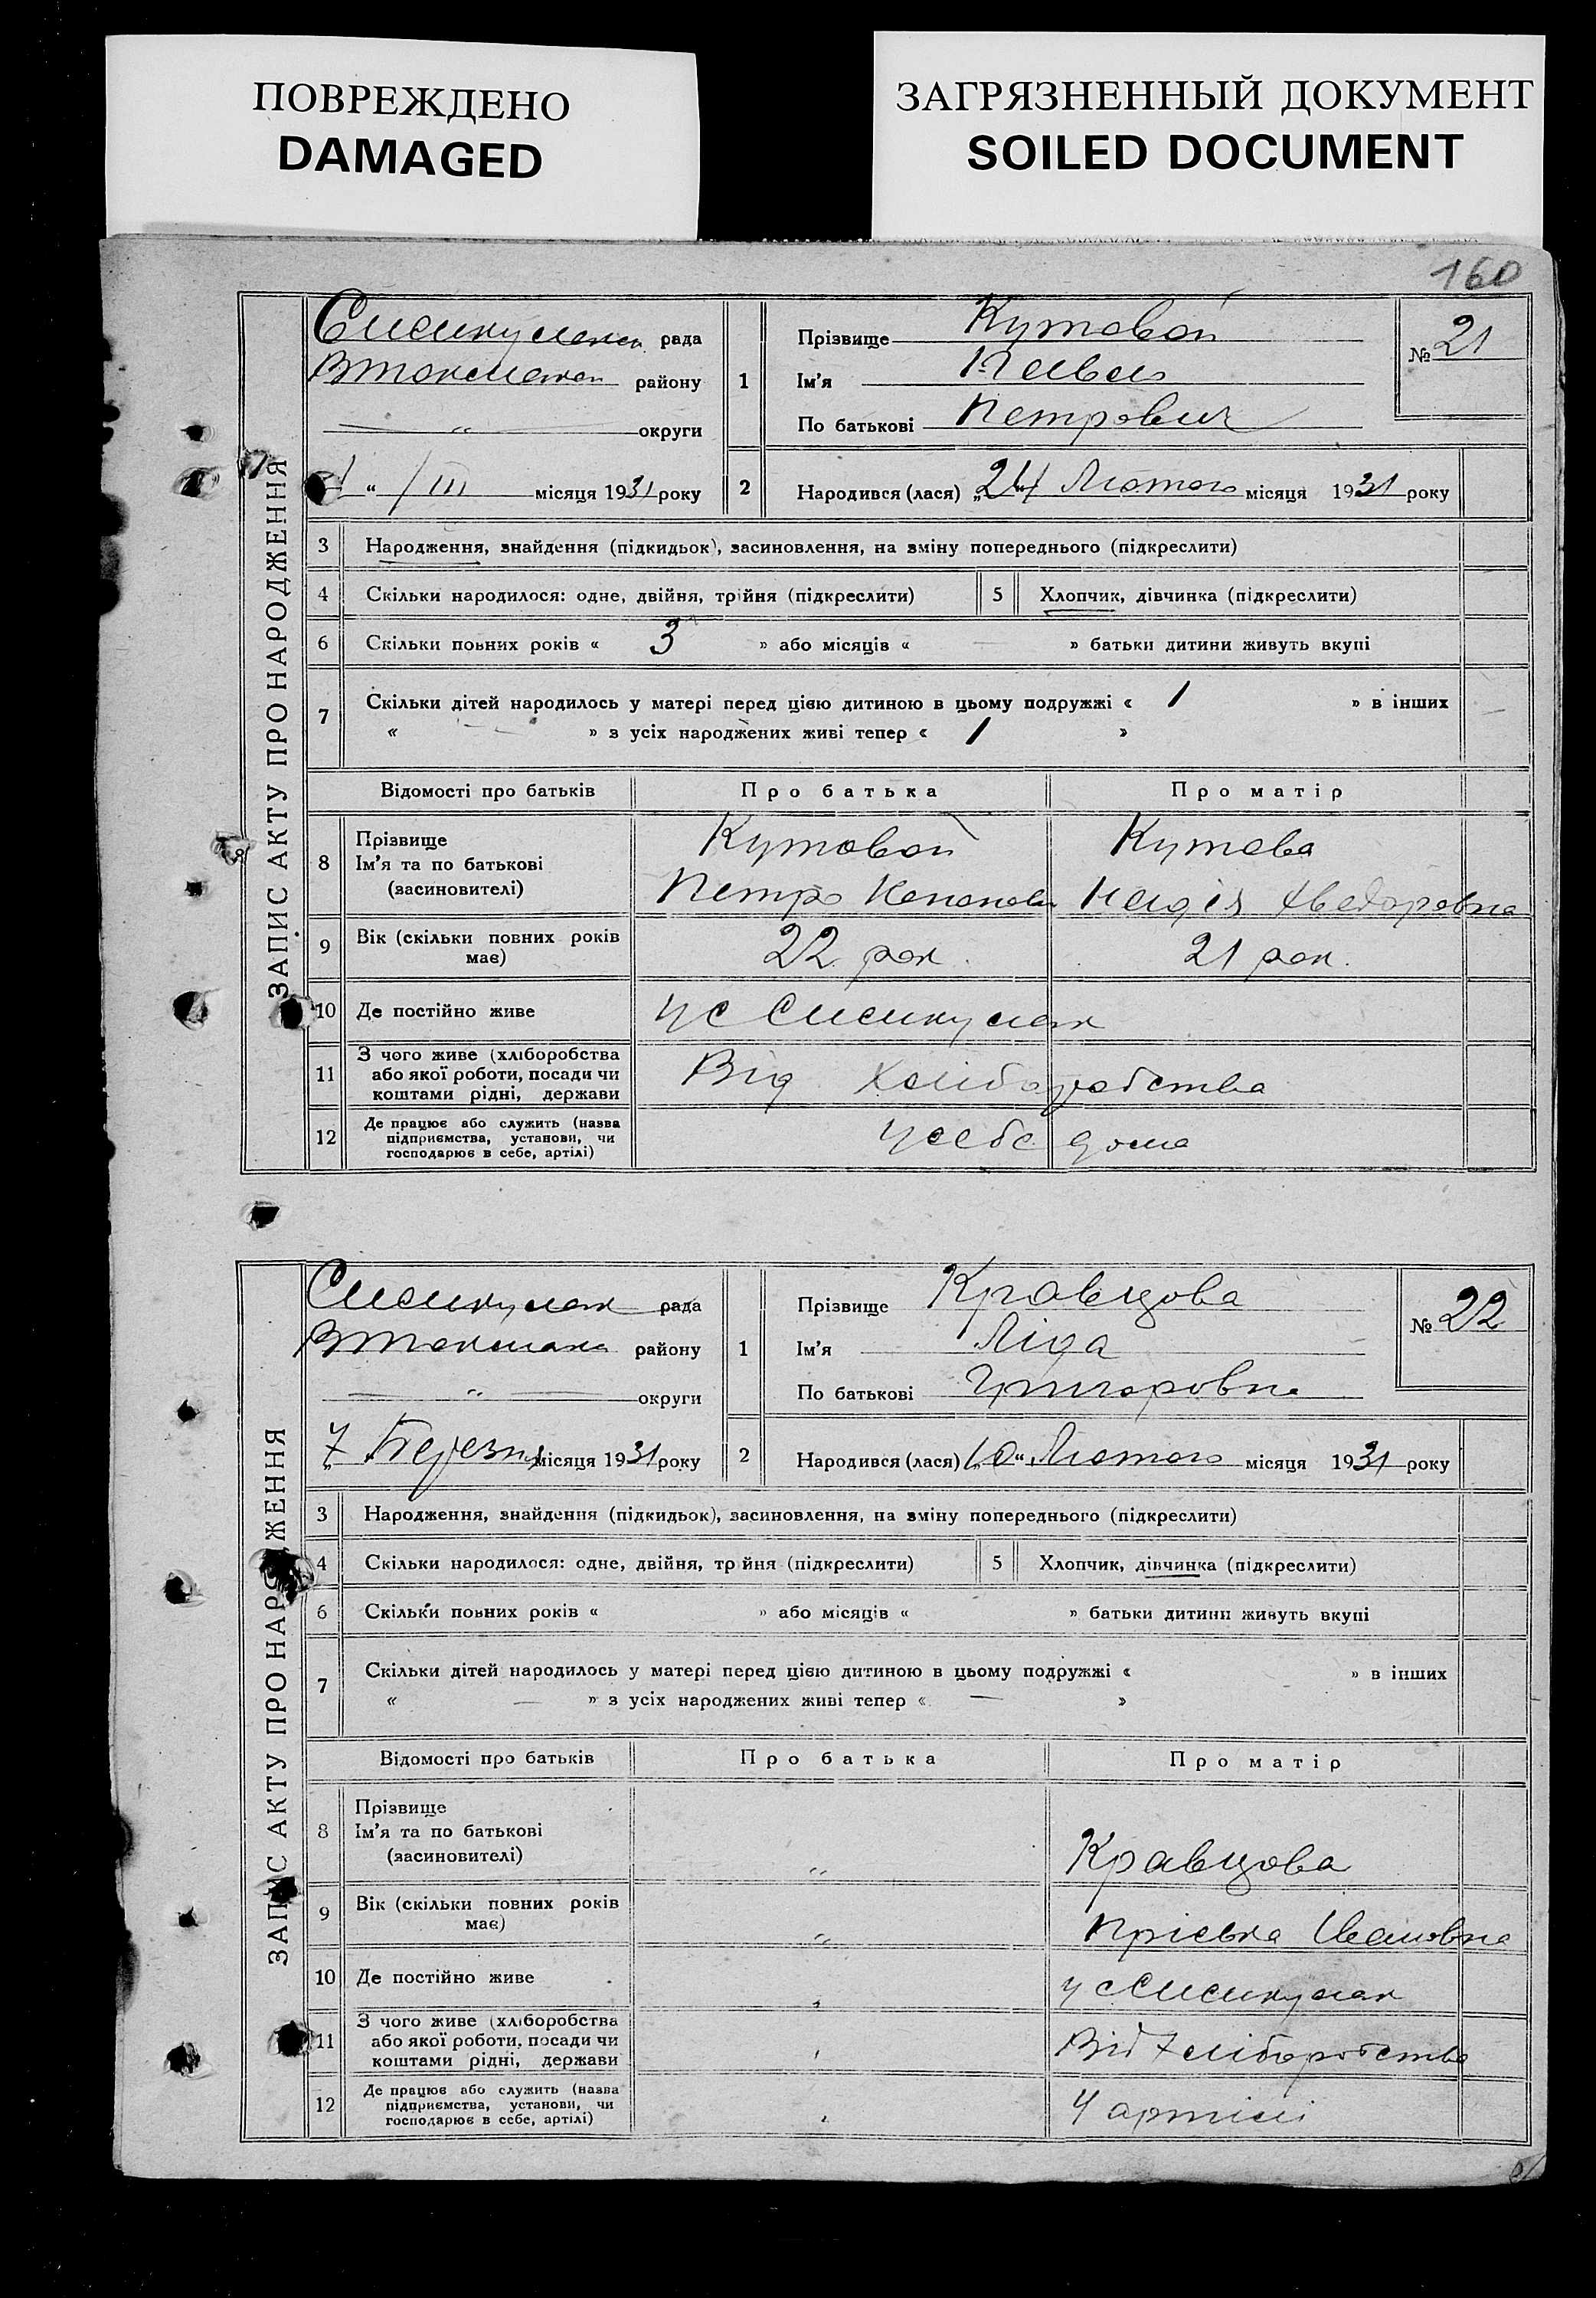 ПОВРЕЖДЕНО
DAMAGED
ЗАГРЯЗНЕННЫЙ ДОКУМЕНТ
SOILED DOCUMENT
160
ЗАПИС АКТУ ПРО НАРОДЖЕННЯ
рада
району
„ округи
1 “ / III місяця 1931 року
1 Прізвище Кутовой
Ім’я Павло
По батькові Петрович
№ 21
2 Народився (лася) „24“ Лютого місяця 1931 року
3 Народження, знайдення (підкидьок), засиновлення, на зміну попереднього (підкреслити)
4 Скільки народилося: одне, двійня, трійня (підкреслити) 5 Хлопчик, дівчинка (підкреслити)
6 Скільки повних років « 3 » або місяців « — » батьки дитини живуть вкупі
7 Скільки дітей народилось у матері перед цією дитиною в цьому подружжі « 1 » в інших
« — » з усіх народжених живі тепер « 1 »
Відомості про батьків Про батька Про матір
8 Прізвище
Ім’я та по батькові
(засиновителі)
Кутовой
Петро
Кутова
Надія
9 Вік (скільки повних років
має)
22 рок. 21 рок.
10 Де постійно живе
11 З чого живе (хліборобства
або якої роботи, посади чи
коштами рідні, держави
Від Хліборобства
12 Де працює або служить (назва
підприємства, установи, чи
господарює в себе, артілі)
у себе дома
ЗАПИС АКТУ ПРО НАРОДЖЕННЯ
рада
району
„ округи
„7 Березня місяця 1931 року
1 Прізвище Кравцова
Ім’я Ліда
По батькові Григоровна
№ 22
2 Народився (лася) „10“ Лютого місяця 1931 року
3 Народження, знайдення (підкидьок), засиновлення, на зміну попереднього (підкреслити)
4 Скільки народилося: одне, двійня, трійня (підкреслити) 5 Хлопчик, дівчинка (підкреслити)
6 Скільки повних років « » або місяців « » батьки дитини живуть вкупі
7 Скільки дітей народилось у матері перед цією дитиною в цьому подружжі « » в інших
« — » з усіх народжених живі тепер « — »
Відомості про батьків Про батька Про матір
8 Прізвище
Ім’я та по батькові
(засиновителі)
„ Кравцова
9 Вік (скільки повних років
має)
„ Пріська Івановна
10 Де постійно живе
11 З чого живе (хліборобства
або якої роботи, посади чи
коштами рідні, держави
Від Хліборобства
12 Де працює або служить (назва
підприємства, установи, чи
господарює в себе, артілі)
У артілі